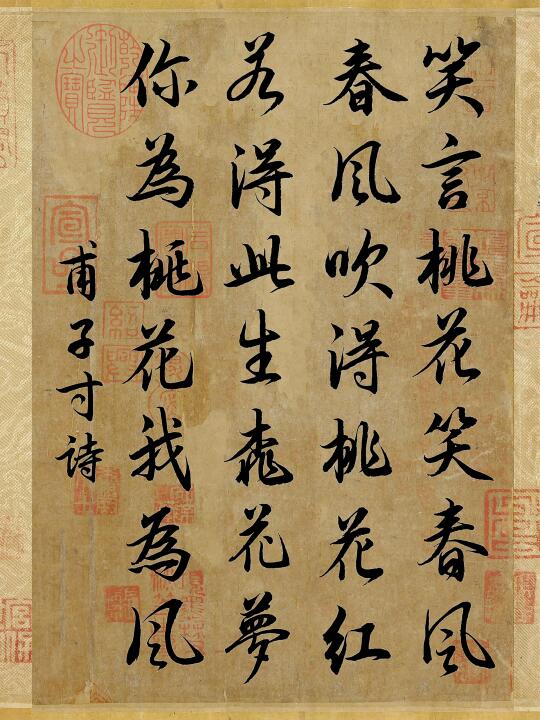 笑言桃花笑春风
春风吹得桃花红
若得此生桃花夢
你為桃花我為风
甫子寸诗